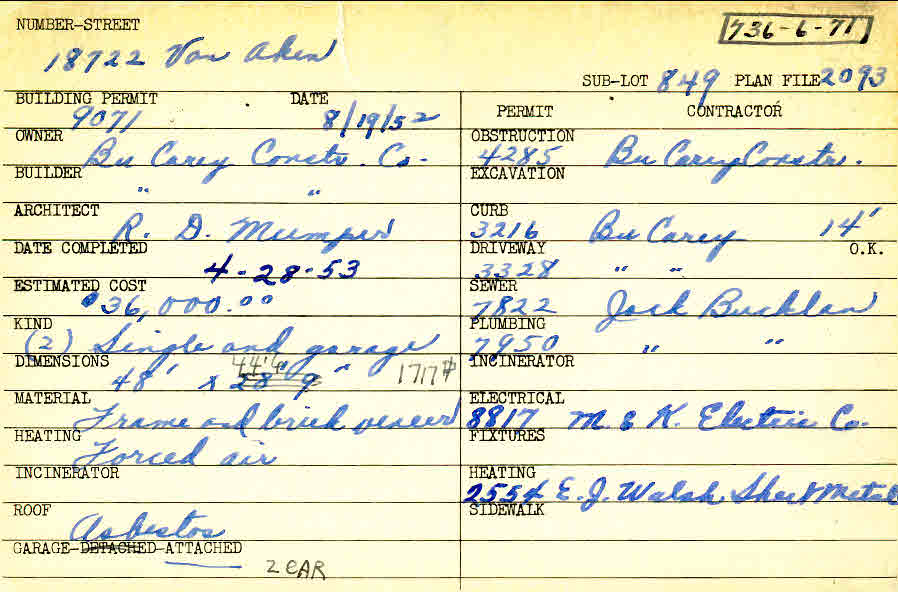 NUMBER-STREET
736-6-71
18722 Van Aken
SUB-LOT 849 PLAN FILE 2093
BUILDING PERMIT DATE
9071 8/19/52
OWNER
Bu Carey Constr. Co.
BUILDER
" "
ARCHITECT
R. D. Mumper
DATE COMPLETED
4-28-53
ESTIMATED COST
$36,000.00
KIND
(2) Single and garage
DIMENSIONS
44'6
48' x 28' 9" 1717#
MATERIAL
Frame and brick veneer
HEATING
Forced air
INCINERATOR
ROOF
Asbestos
GARAGE-DETACHED-ATTACHED
2 CAR
PERMIT CONTRACTOR
OBSTRUCTION
4285 Bu Carey Constr.
EXCAVATION
CURB
3216 Bu Carey 14'
DRIVEWAY O.K.
3328 " "
SEWER
7822 Jack Bucklan
PLUMBING
7950 " "
INCINERATOR
ELECTRICAL
8817 M. & K. Electric Co.
FIXTURES
HEATING
2554 E. J. Walsh Sheet Metal
SIDEWALK